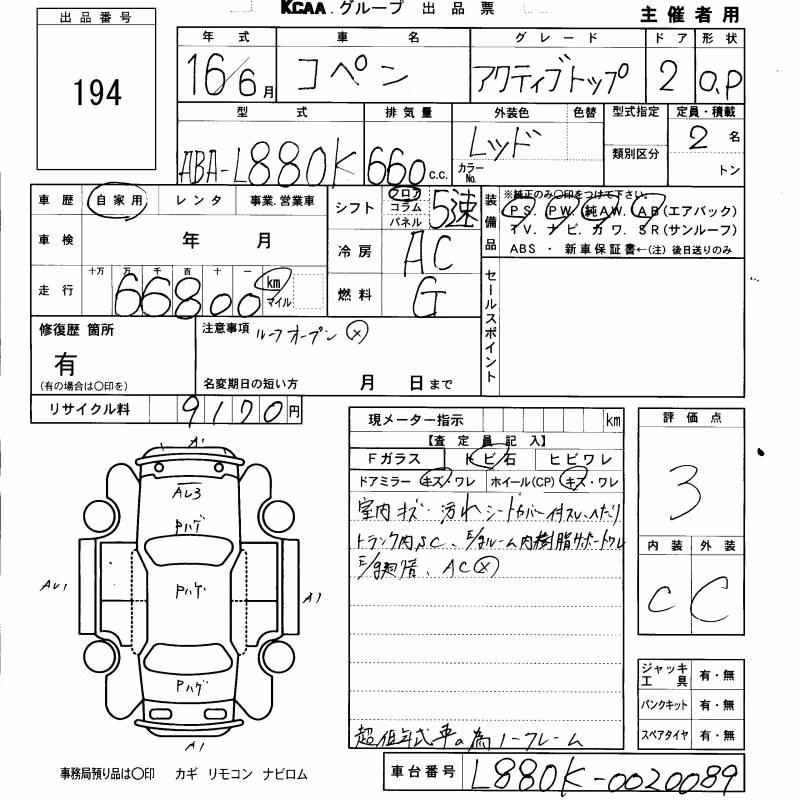 KCAA.グループ 出品票
主催者用
出品番号
194
年式 車名 グレード ドア 形状
16/6月 コペン アクティブトップ 2 O.P
型式 排気量 外装色 色替 型式指定 定員・積載
ABA-L880K 660 c.c. レッド カラーNo. 類別区分 2名
トン
車歴 自家用 レンタ 事業.営業車
シフト フロア コラム パネル 5速
装備品 ※純正のみ○印をつけて下さい。
PS. PW. 純AW. AB(エアバック)
TV. ナビ. カワ. SR(サンルーフ)
ABS ・ 新車保証書←(注) 後日送りのみ
車検 年 月
冷房 AC
走行 十万 万 千 百 十 一 km マイル
66800
燃料 G
セールスポイント
修復歴 箇所
有
(有の場合は○印を)
注意事項 ルーフオープン(×)
名変期日の短い方 月 日まで
リサイクル料 9170円
現メーター指示 km
【査定員記入】
Fガラス トビ石 ヒビワレ
ドアミラー キズ・ワレ ホイール(CP) キズ・ワレ
室内キズ・汚れ シートカバー付スレ、へたり
トランク内SC、E/gルーム内樹脂サポートワレ
AC(×)
超低年式車の為ノークレーム
評価点
3
内装 外装
C C
ジャッキ工具 有・無
パンクキット 有・無
スペアタイヤ 有・無
A1
AU3
Pハゲ
Pハゲ
AU1
A1
Pハゲ
A1
事務局預り品は○印 カギ リモコン ナビロム
車台番号 L880K-0020089